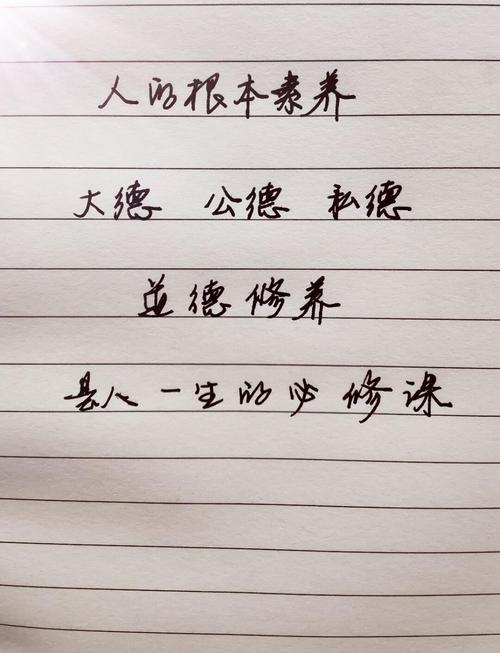 人的根本素养
大德 公德 私德
道德修养
是人一生的必修课